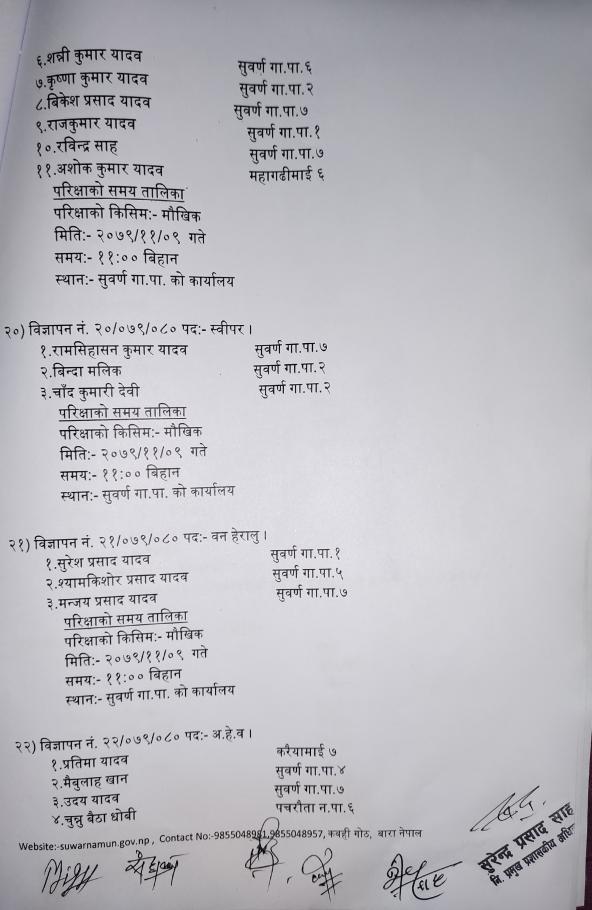 ६.शन्नी कुमार यादव सुवर्ण गा.पा.६
७.कृष्णा कुमार यादव सुवर्ण गा.पा.२
८.बिकेश प्रसाद यादव सुवर्ण गा.पा.७
९.राजकुमार यादव सुवर्ण गा.पा.१
१०.रविन्द्र साह सुवर्ण गा.पा.७
११.अशोक कुमार यादव महागढीमाई ६
परिक्षाको समय तालिका
परिक्षाको किसिम:- मौखिक
मिति:- २०७९/११/०९ गते
समय:- ११:०० बिहान
स्थान:- सुवर्ण गा.पा. को कार्यालय
२०) विज्ञापन नं. २०/०७९/०८० पद:- स्वीपर ।
१.रामसिहासन कुमार यादव सुवर्ण गा.पा.७
२.बिन्दा मलिक सुवर्ण गा.पा.२
३.चाँद कुमारी देवी सुवर्ण गा.पा.२
परिक्षाको समय तालिका
परिक्षाको किसिम:- मौखिक
मिति:- २०७९/११/०९ गते
समय:- ११:०० बिहान
स्थान:- सुवर्ण गा.पा. को कार्यालय
२१) विज्ञापन नं. २१/०७९/०८० पद:- वन हेरालु ।
१.सुरेश प्रसाद यादव सुवर्ण गा.पा.१
२.श्यामकिशोर प्रसाद यादव सुवर्ण गा.पा.५
३.मन्जय प्रसाद यादव सुवर्ण गा.पा.७
परिक्षाको समय तालिका
परिक्षाको किसिम:- मौखिक
मिति:- २०७९/११/०९ गते
समय:- ११:०० बिहान
स्थान:- सुवर्ण गा.पा. को कार्यालय
२२) विज्ञापन नं. २२/०७९/०८० पद:- अ.हे.व ।
१.प्रतिमा यादव करैयामाई ७
२.मैबुलाह खान सुवर्ण गा.पा.४
३.उदय यादव सुवर्ण गा.पा.७
४.चुन्नु बैठा धोबी पचरौता न.पा.६
Website:-suwarnamun.gov.np , Contact No:-9855048981,9855048957, कवही गोठ, बारा नेपाल
सुरेन्द्र प्रसाद साह
नि. प्रमुख प्रशासकीय